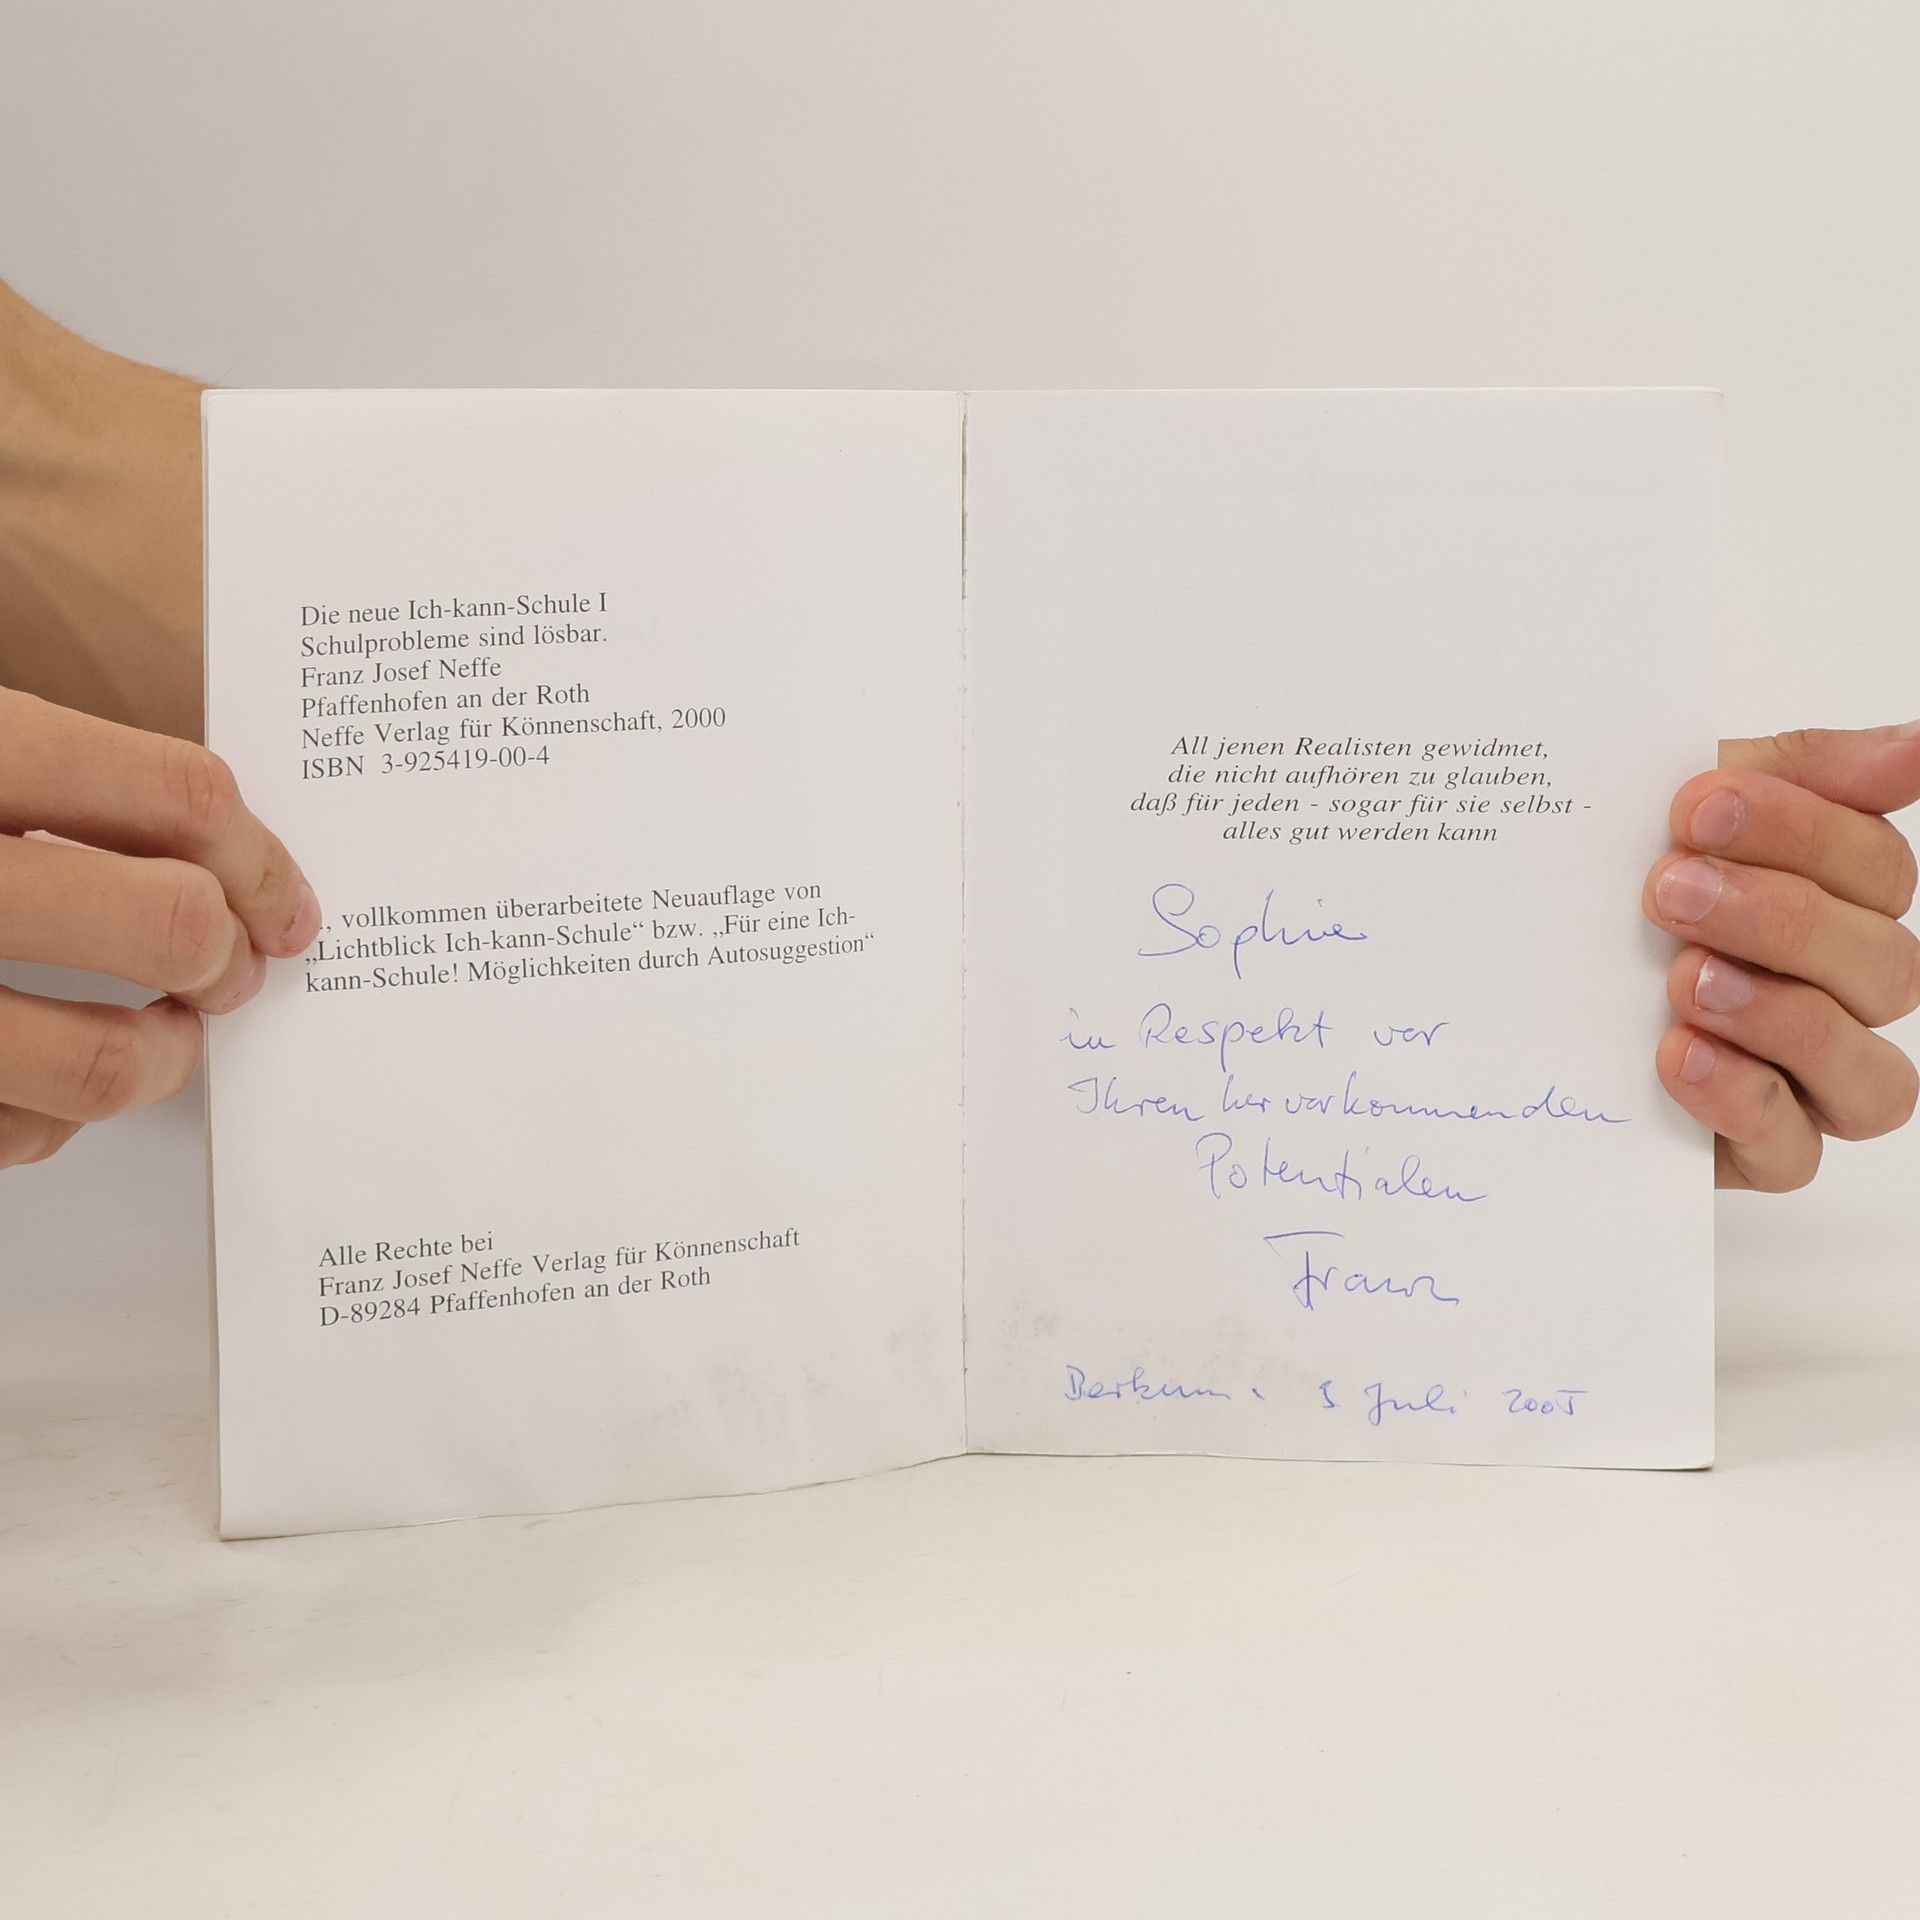 Die neue Ich-kann-Schule I
Schulprobleme sind lösbar.
Franz Josef Neffe
Pfaffenhofen an der Roth
Neffe Verlag für Könnenschaft, 2000
ISBN 3-925419-00-4
., vollkommen überarbeitete Neuauflage von
„Lichtblick Ich-kann-Schule“ bzw. „Für eine Ich-
kann-Schule! Möglichkeiten durch Autosuggestion“
Alle Rechte bei
Franz Josef Neffe Verlag für Könnenschaft
D-89284 Pfaffenhofen an der Roth
All jenen Realisten gewidmet,
die nicht aufhören zu glauben,
daß für jeden - sogar für sie selbst -
alles gut werden kann
Sophie
in Respekt vor
Ihren hervorkommenden
Potentialen
Franz
Berkum, Juli 2005